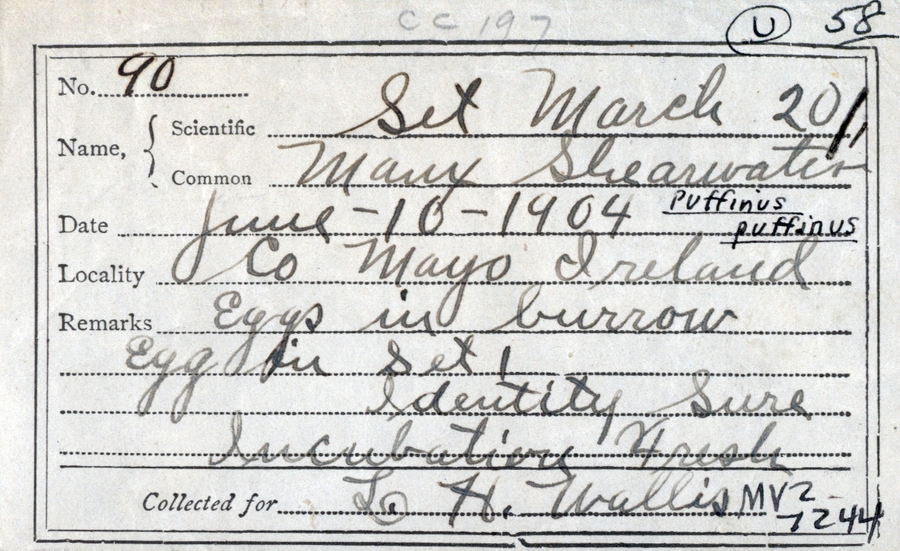 CC 197
U 58
No. 90
Set March 20/1
Name, { Scientific
Common Manx Shearwater
Date June-10-1904 Puffinus puffinus
Locality Co Mayo Ireland
Remarks Eggs in burrow
Egg in set 1
Identity Sure
Incubation Fresh
Collected for L. H. Wallis MVZ-7244